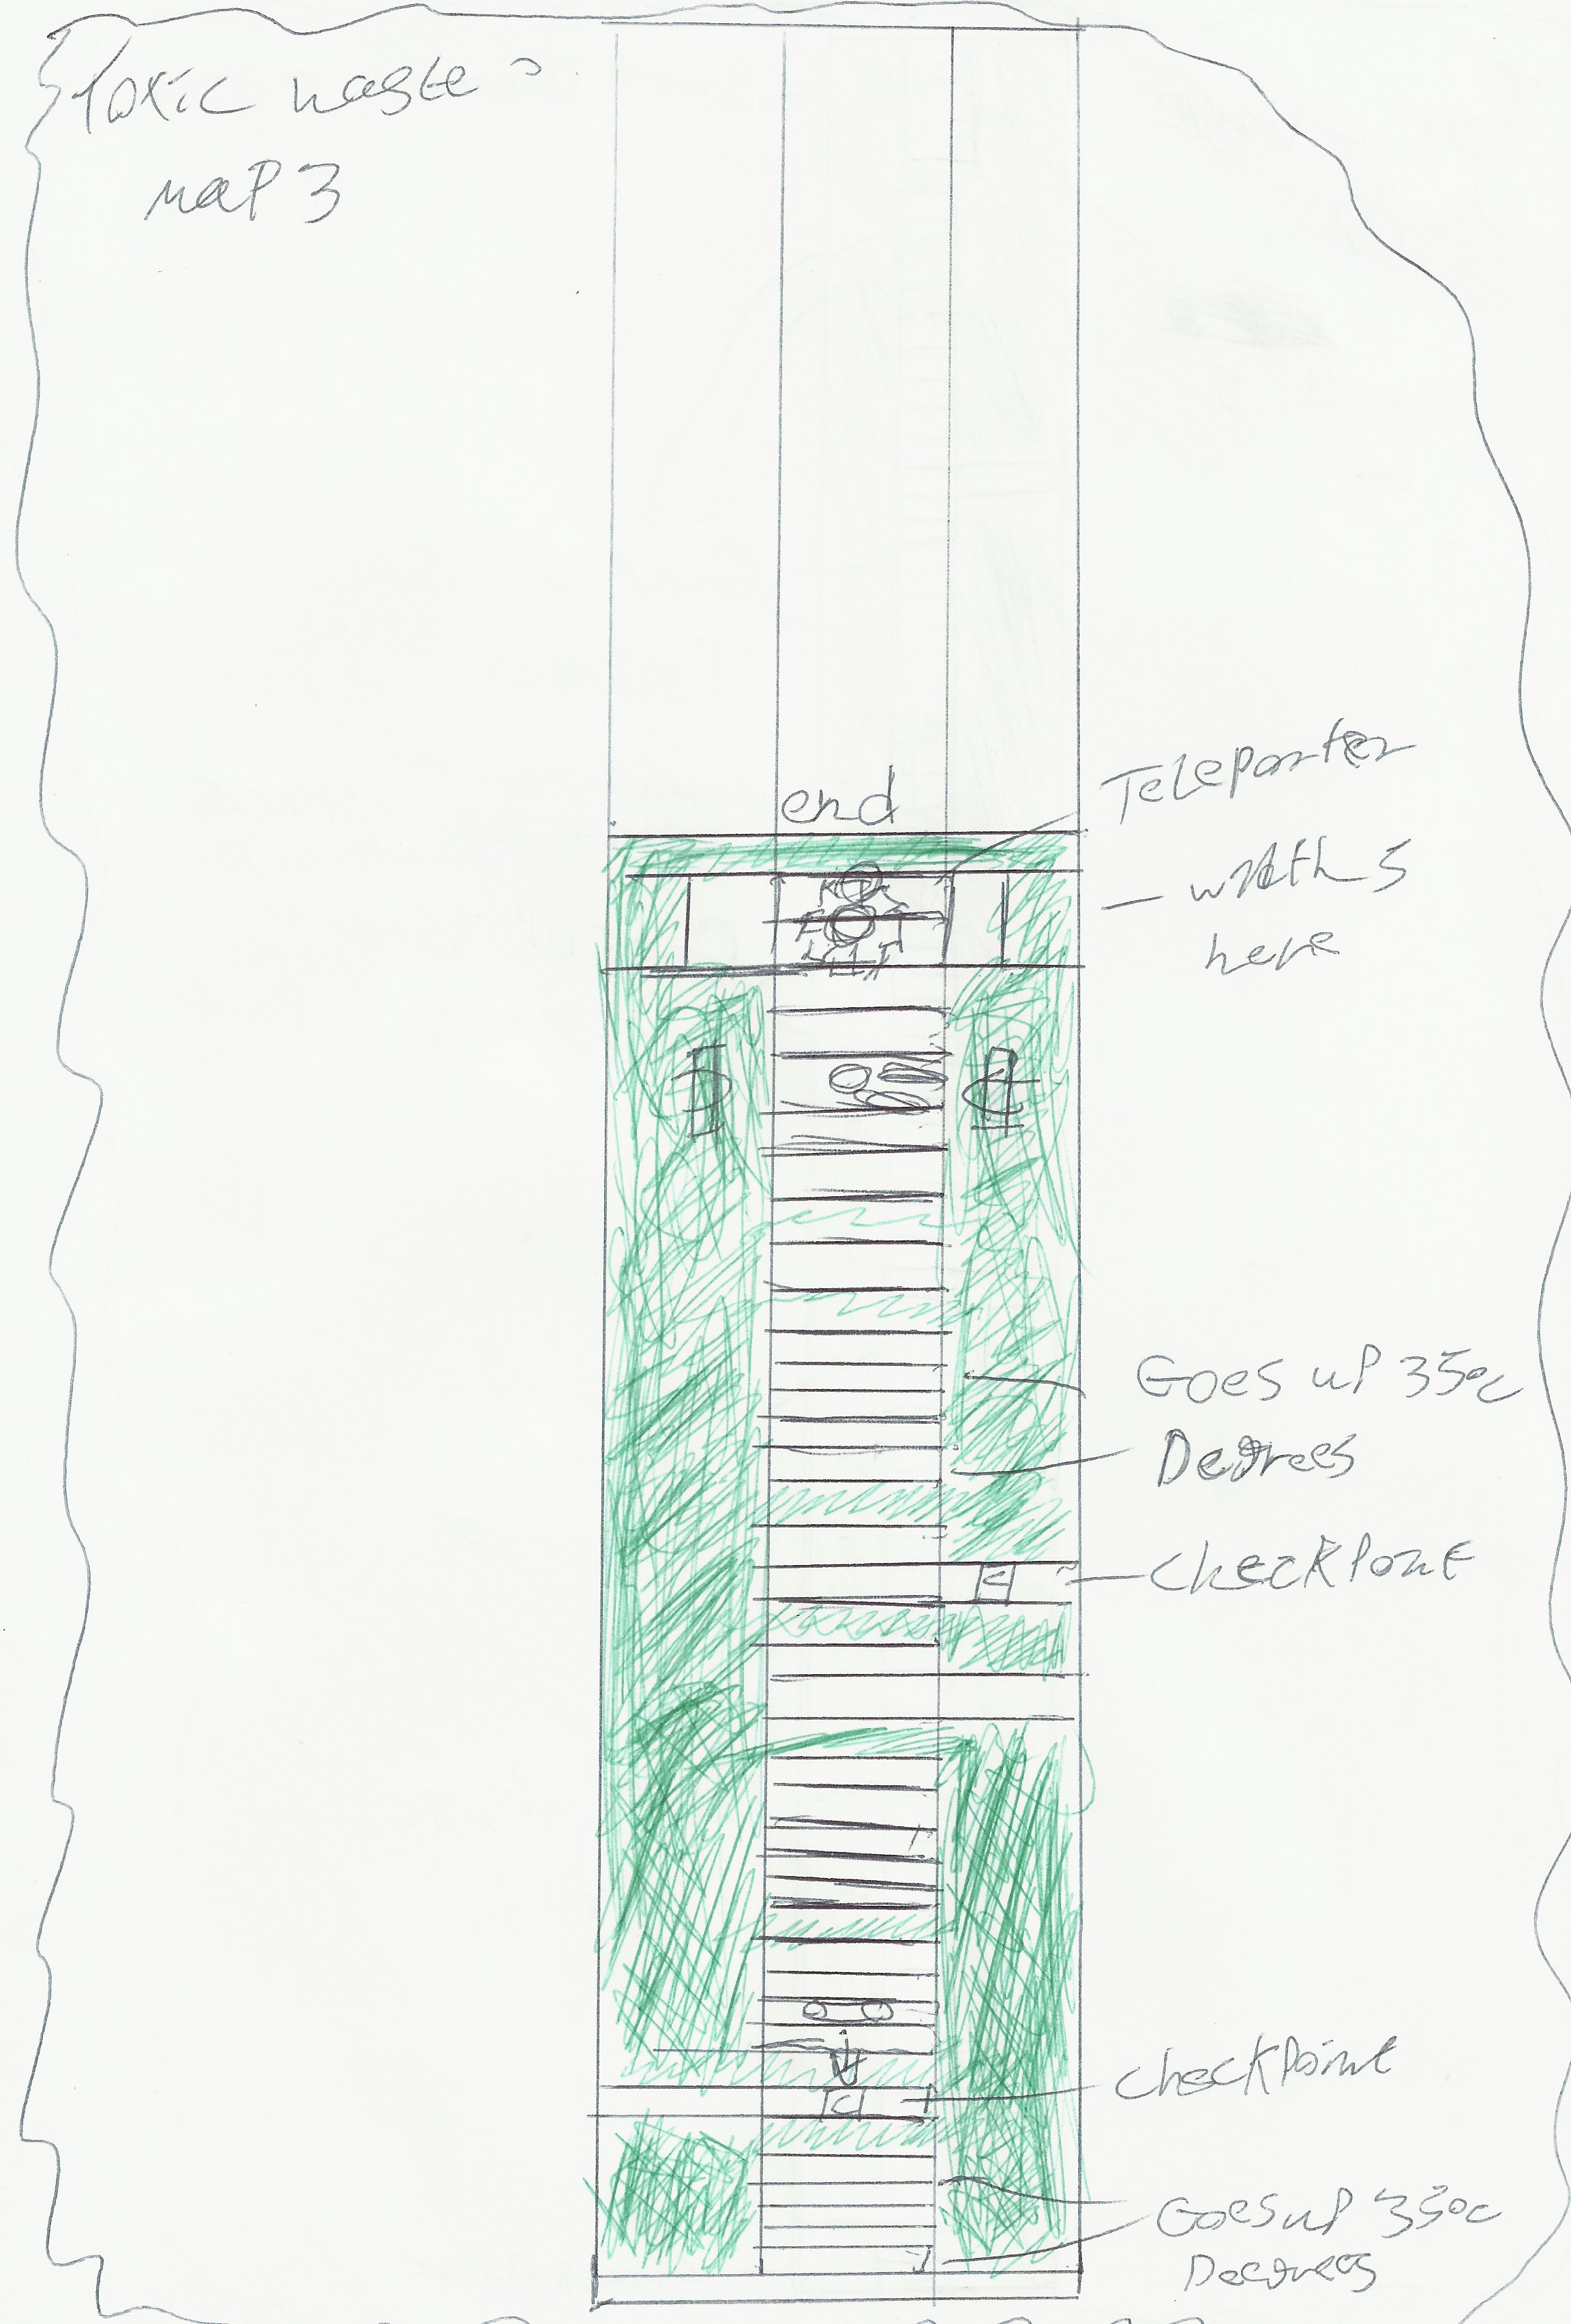 Toxic waste
map 3
end
Teleporter
width 5
here
Goes up 35°c
Degrees
checkPoint
C
checkPoint
C
Goes up 35°c
Degrees